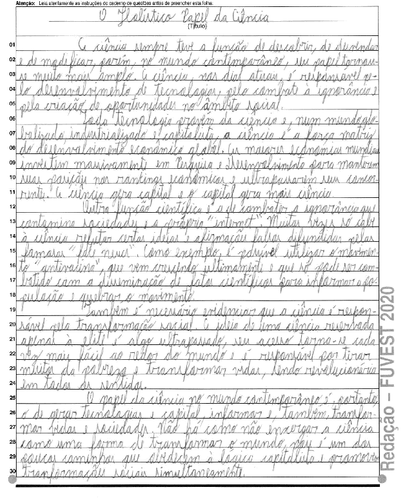 Atenção: Leia atentamente as instruções do caderno de questões antes de preencher esta folha.
O Holístico Papel da Ciência
(Título)
01 A ciência sempre teve a função de descobrir, de desvendar
02 e de modificar, porém, no mundo contemporâneo, seu papel tornou-
03 se muito mais amplo. A ciência, nos dias atuais, é responsável pe-
04 lo desenvolvimento de tecnologias, pelo combate à ignorância e
05 pela criação de oportunidades no âmbito social.
06 Toda tecnologia provém da ciência e, num mundo glo-
07 balizado, industrializado e capitalista, a ciência é a força matriz
08 do desenvolvimento econômico global. As maiores economias mundiais
09 investem massivamente em Pesquisa e Desenvolvimento para manterem
10 suas posições nos rankings econômicos e ultrapassarem seus concor-
11 rentes. A ciência gera capital e o capital gera mais ciência.
12 Outra função científica é a de combater a ignorância que
13 contamina sociedades e a própria "internet". Muitas vezes só cabe
14 à ciência refutar certas ideias e afirmações falsas defendidas pelas
15 famosas "fake news". Como exemplo, é possível utilizar o movimen-
16 to "antivacina", que vem crescendo ultimamente e que só pode ser com-
17 batido com a disseminação de dados científicos para informar a po-
18 pulação e quebrar o movimento.
19 Também é necessário evidenciar que a ciência é respon-
20 sável pela transformação social. A ideia de uma ciência reservada
21 apenas à elite é algo ultrapassado, seu acesso torna-se cada
22 vez mais fácil ao redor do mundo e é responsável por tirar
23 muitos da pobreza e transformar vidas, sendo revolucionária
24 em todos os sentidos.
25 O papel da ciência no mundo contemporâneo é, portanto,
26 o de gerar tecnologias e capital, informar e, também, transfor-
27 mar vidas e sociedades. Não há como não enxergar a ciência
28 como uma forma de transformar o mundo, pois é um dos
29 poucos caminhos que obedecem à lógica capitalista e promovem
30 transformações sociais simultaneamente.
Redação – FUVEST 2020